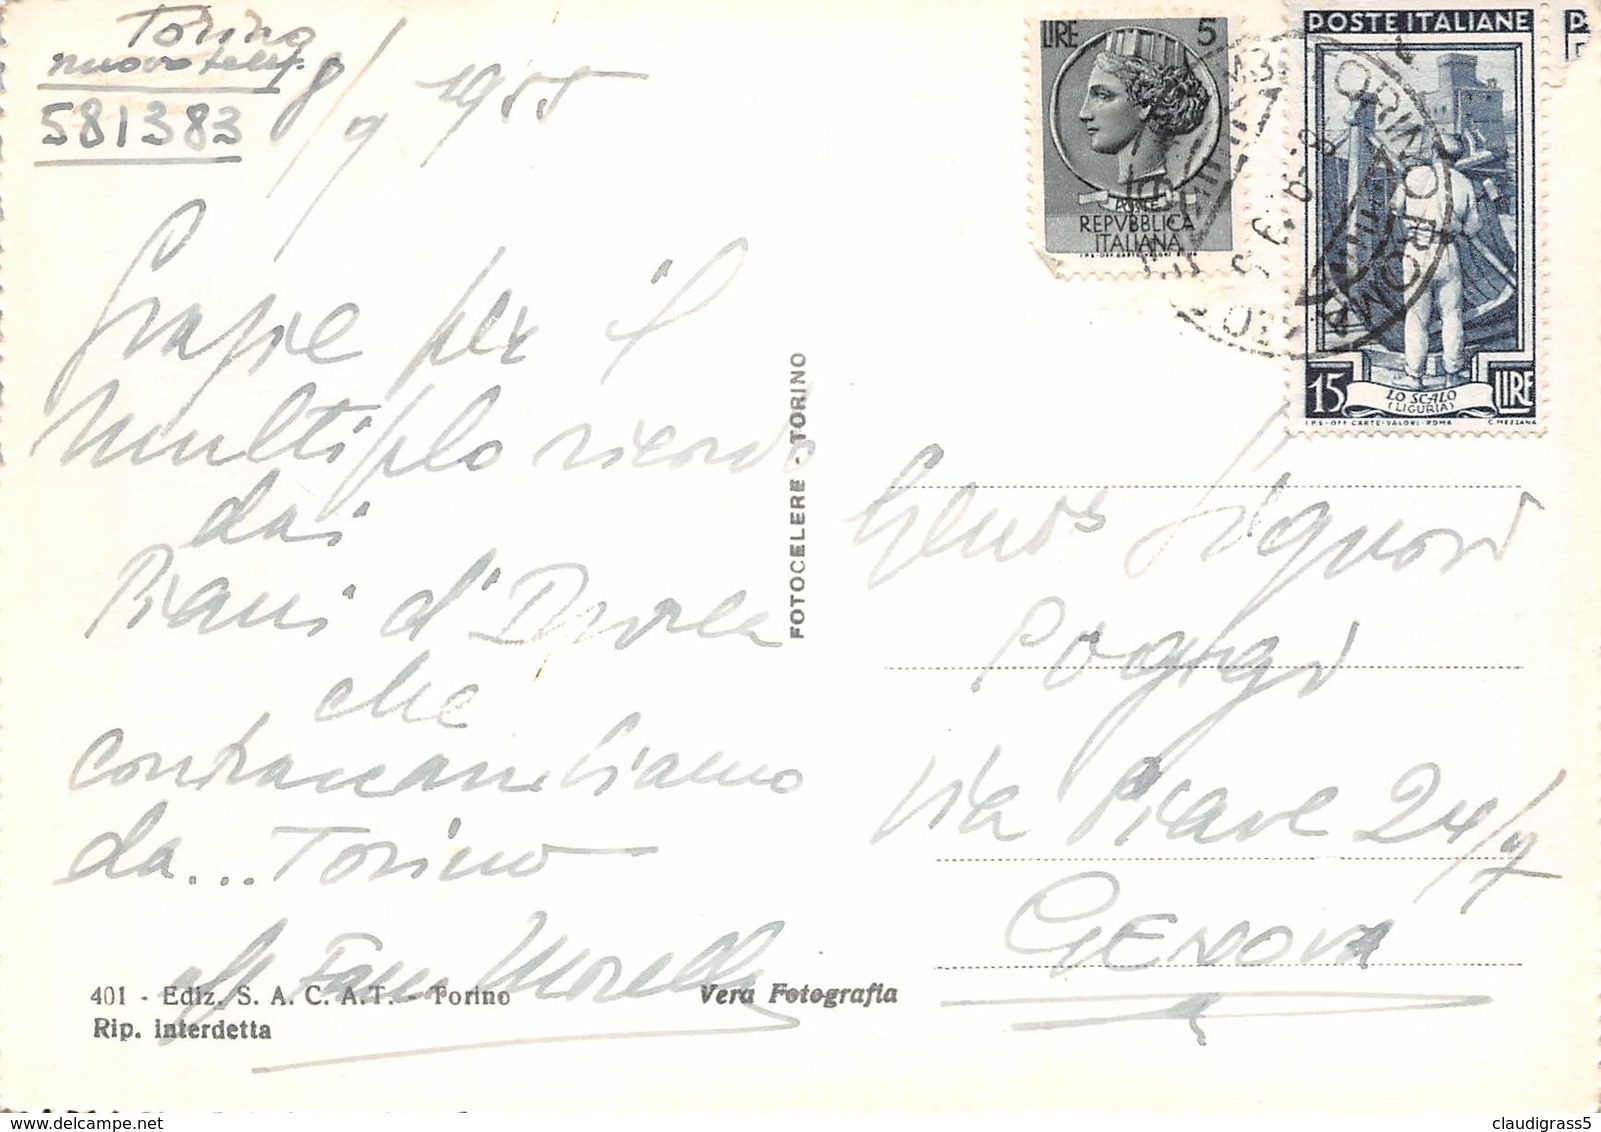 Torino
nuovo telef.
581383
8/9 1955
Grazie per il
multiplo ricordo
dai
Piani d'Invrea
che
contraccambiamo
da... Torino
Fam Morelli
401 - Ediz. S. A. C. A. T. - Torino
Rip. interdetta
Vera Fotografia
FOTOCELERE - TORINO
LIRE 5
POSTE
REPVBBLICA
ITALIANA
I.P.S.-OFF. CARTE-VALORI-ROMA
POSTE ITALIANE
15 LIRE
LO SCALO
(LIGURIA)
I.P.S.-OFF. CARTE-VALORI-ROMA C. MEZZANA
TORINO
Signori
Poggi
Via Piave 24/7
GENOVA
claudigrass5